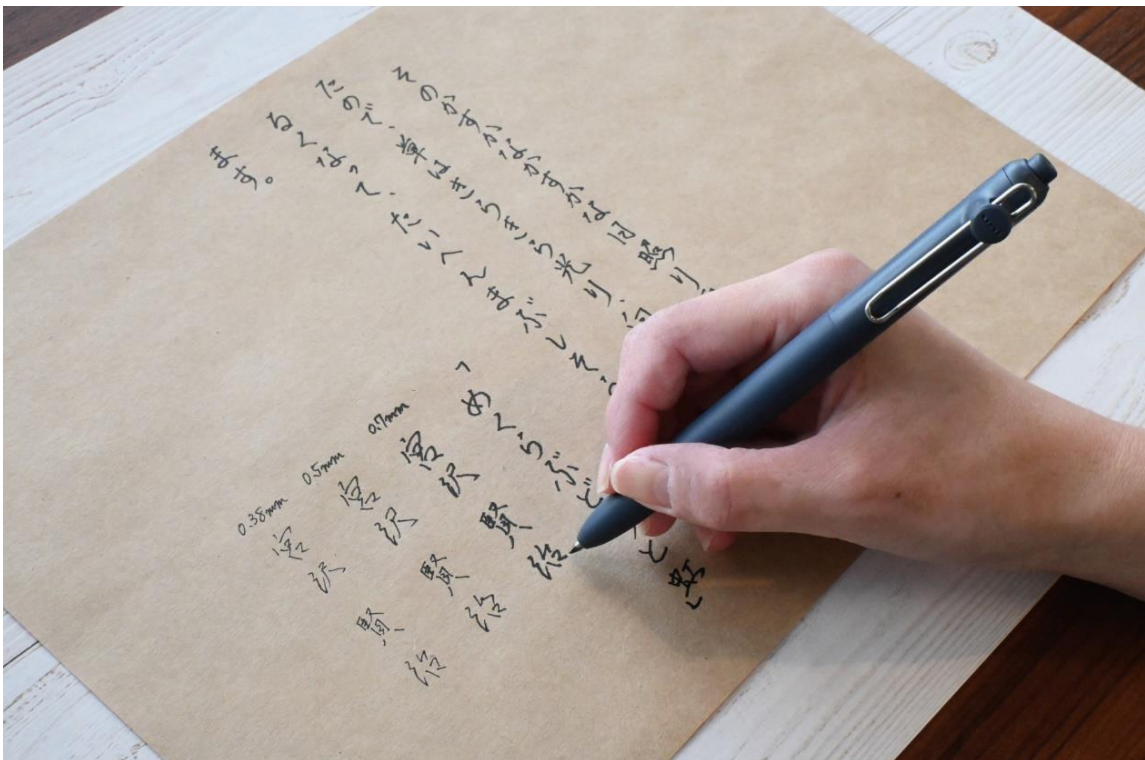 そのかすかなかすかな日照り
たので、草はきらきら光り、向
るくなって、たいへんまぶしそう
ます。
「めくらぶど と虹」
0.7mm
宮沢 賢治
0.5mm
宮沢 賢治
0.38mm
宮沢 賢治